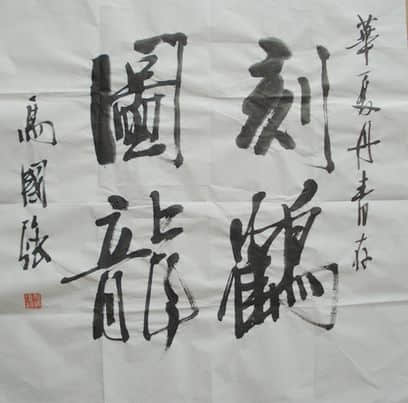 華夏丹青存
刻鶴
圖龍
高國強